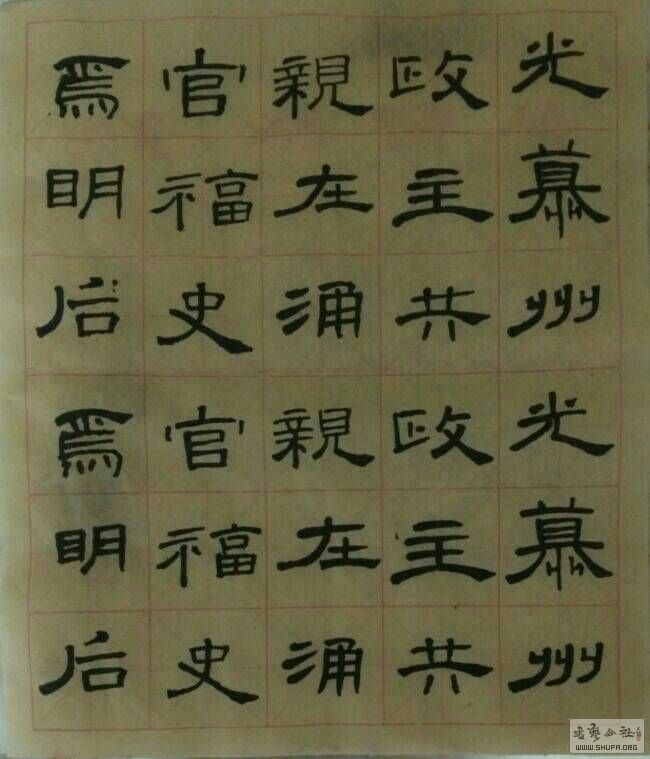 光慕州光慕州
政主共政主共
親在涌親在涌
官福史官福史
焉眀后焉眀后
書藝公社
WWW.SHUFA.ORG